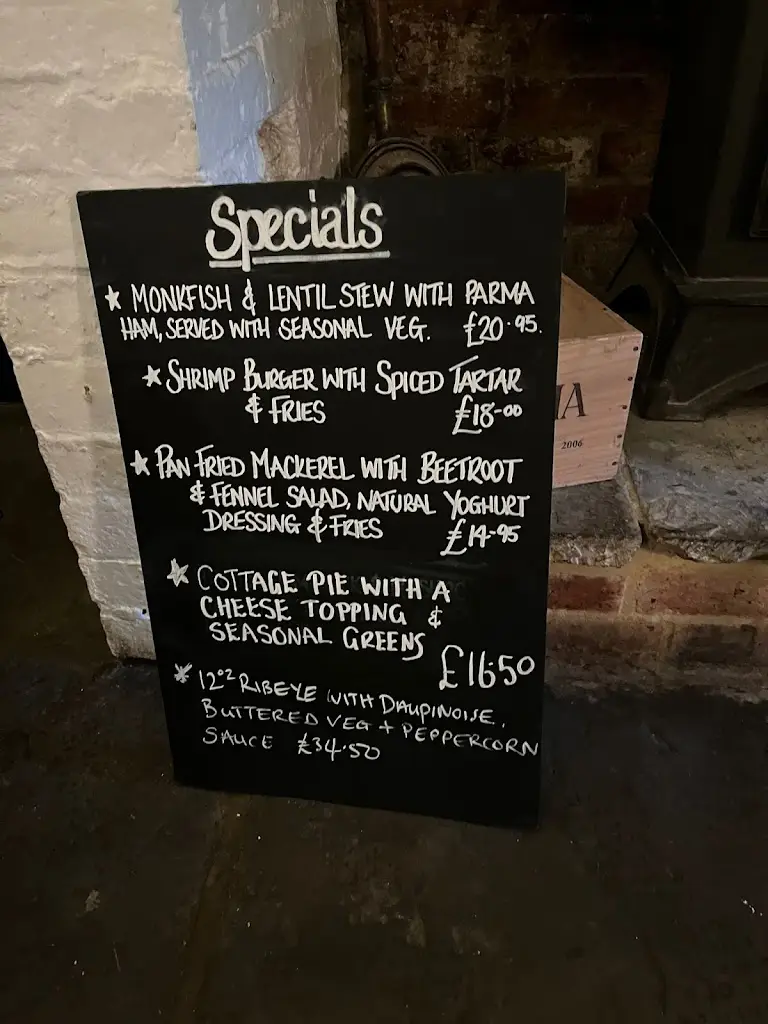 Specials
* MONKFISH & LENTIL STEW WITH PARMA
HAM, SERVED WITH SEASONAL VEG. £20.95.
* SHRIMP BURGER WITH SPICED TARTAR
& FRIES £18-00
* PAN FRIED MACKEREL WITH BEETROOT
& FENNEL SALAD, NATURAL YOGHURT
DRESSING & FRIES £14-95
* COTTAGE PIE WITH A
CHEESE TOPPING &
SEASONAL GREENS
£16.50
* 12oz RIBEYE WITH DAUPINOISE,
BUTTERED VEG + PEPPERCORN
SAUCE £34.50
IA
2006